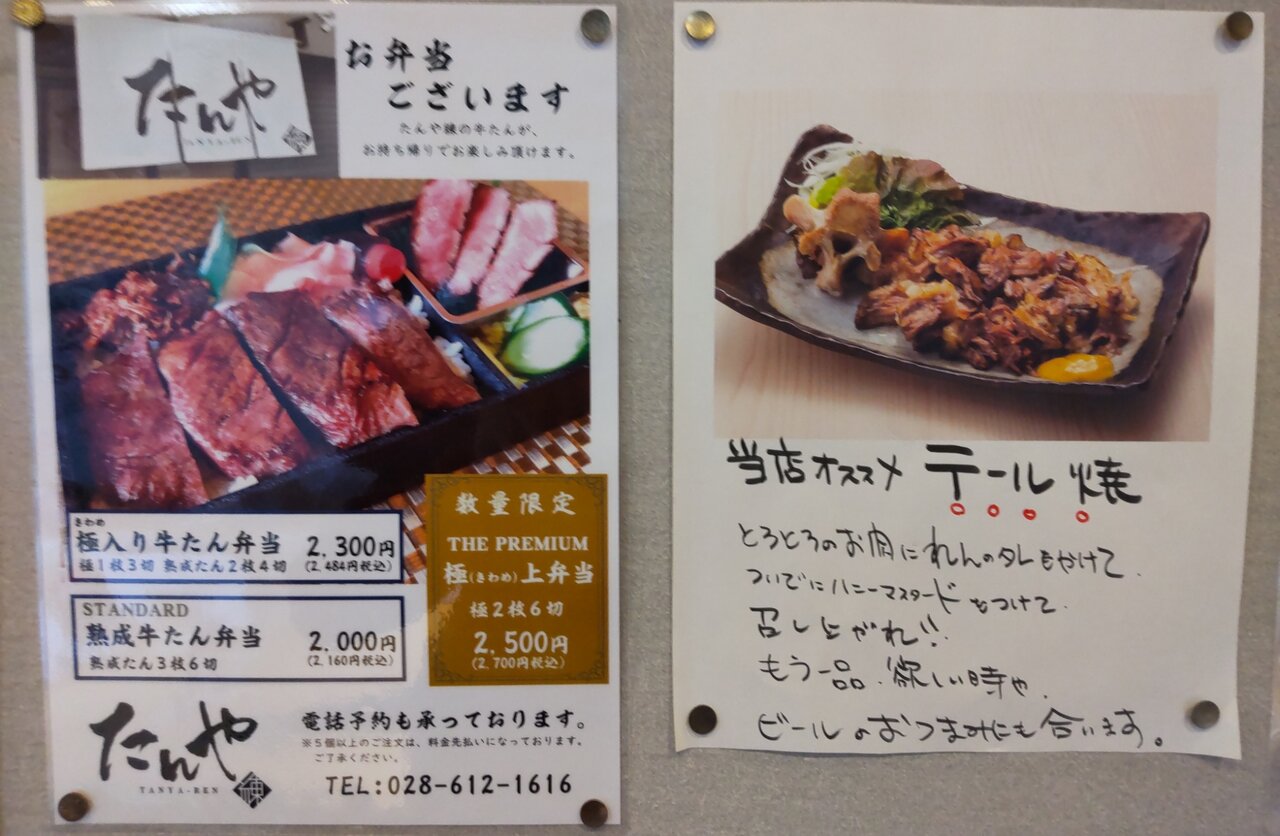 たんや
TANYA-REN
練
お弁当
ございます
たんや練の牛たんが、
お持ち帰りでお楽しみ頂けます。
きわめ
極入り牛たん弁当 2,300円
極1枚3切 熟成たん2枚4切 (2,484円税込)
STANDARD
熟成牛たん弁当 2,000円
熟成たん3枚6切 (2,160円税込)
数量限定
THE PREMIUM
極(きわめ)上弁当
極2枚6切
2,500円
(2,700円税込)
たんや
TANYA-REN
練
電話予約も承っております。
※5個以上のご注文は、料金先払いになっております。
ご了承ください。
TEL:028-612-1616
当店オススメ テール焼
とろとろのお肉にれんのタレをかけて、
ついでにハニーマスタードをつけて、
召し上がれ!!
もう一品、欲しい時や、
ビールのおつまみにも合います。